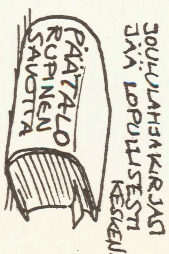 JOULULAHJAKIRJASI
JÄÄ LOPULLISESTI
KESKEN.
PÄÄTALO
RUPINEN
SAVOTTA